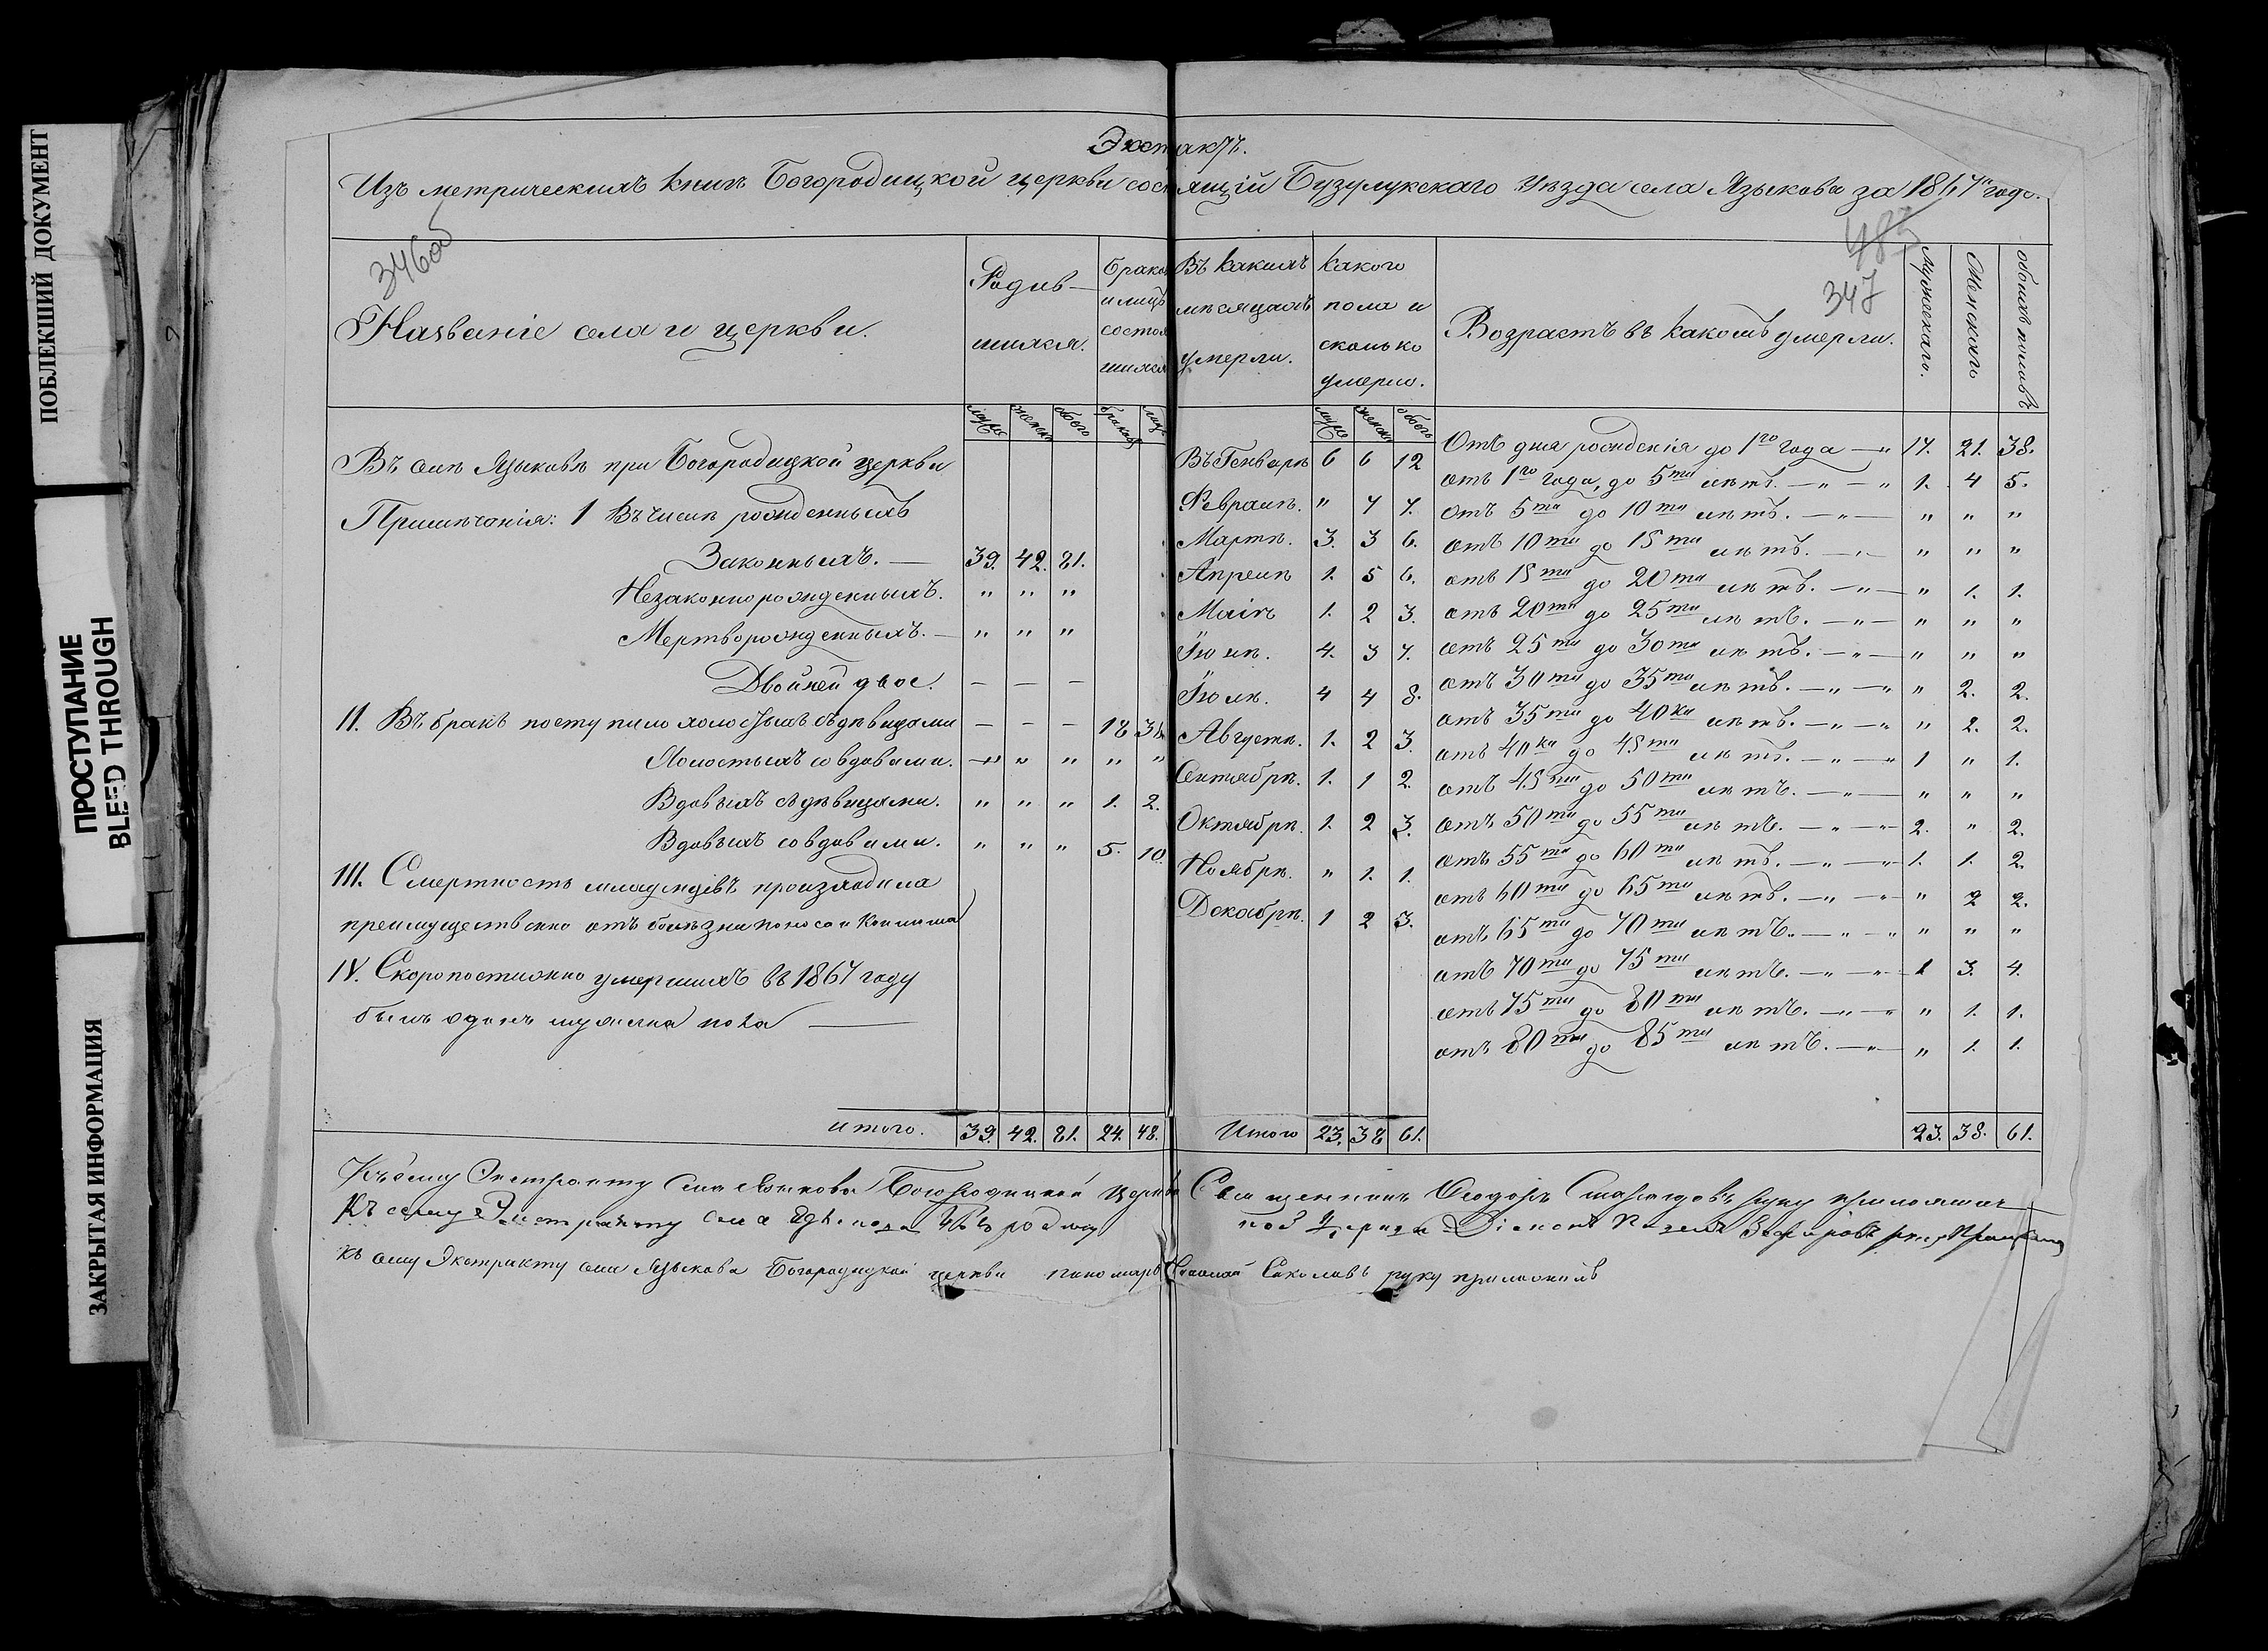 ПОБЛЕКШИЙ ДОКУМЕНТ
ПРОСТУПАНИЕ
BLEED THROUGH
ЗАКРЫТАЯ ИНФОРМАЦИЯ
Экстрактъ.
Изъ метрическихъ книгъ Богородицкой церкви состоящій Бузулукскаго Уѣзда села Языкова за 1867й годъ.
346об
483
347
Названіе села и церкви.
Родив-
шихся.
Браковъ
и лицъ
состояв
шихся
муж женск обоего браковъ лиц
Въ селѣ Языковѣ при Богородицкой церкви
Примѣчанія: 1 Въ числѣ рожденныхъ
Законныхъ. — 39. 42. 81.
Незаконнорожденныхъ. " " "
Мертворожденныхъ. — " " "
Двойней двое. — — —
II. Въ бракъ поступило холостыхъ съ дѣвицами — — — 18 36
Холостыхъ со вдовами. —" " " " "
Вдовыхъ съ дѣвицами. " " " 1. 2.
Вдовыхъ со вдовами. " " " 5. 10.
III. Смертность младенцевъ происходила
преимущественно отъ болѣзни поноса и кашля
IV. Скоропостижно умершихъ въ 1867 году
былъ одинъ мужска пола —
итого. 39. 42. 81. 24. 48.
Въ какихъ
мѣсяцахъ
умерли.
Какого
пола и
сколько
умерло.
муж женск обоего
Въ Генварѣ 6 6 12
Февралѣ. " 7 7.
Мартѣ. 3. 3 6.
Апрелѣ 1. 5 6.
Маіѣ 1. 2 3.
Іюнѣ. 4. 3 7.
Іюлѣ. 4 4 8.
Августѣ. 1. 2 3.
Сентябрѣ. 1. 1 2.
Октябрѣ. 1. 2 3.
Ноябрѣ. " 1. 1.
Декабрѣ. 1 2 3.
Итого 23. 38 61.
Возрастъ въ какомъ умерли.
Мужескаго.
Женскаго
обоихъ половъ
Отъ дня рожденія до 1го года —" 17. 21. 38.
отъ 1го года, до 5ти лѣтъ. —"—" 1. 4 5.
отъ 5ти до 10ти лѣтъ. —"— " " "
отъ 10ти до 15ти лѣтъ. —"— " " "
отъ 15ти до 20ти лѣтъ. —"— " 1. 1.
отъ 20ти до 25ти лѣтъ. —"— " " "
отъ 25ти до 30ти лѣтъ. —"— " " "
отъ 30ти до 35ти лѣтъ. —"—" " 2. 2.
отъ 35ти до 40ка лѣтъ. —"—" " 2. 2.
отъ 40ка до 45ти лѣтъ. —"—" 1 " 1.
отъ 45ти до 50ти лѣтъ. —"— " " "
отъ 50ти до 55ти лѣтъ. —"—" 2. " 2.
отъ 55ти до 60ти лѣтъ. —"—" 1. 1. 2.
отъ 60ти до 65ти лѣтъ. —"—" " 2 2.
отъ 65ти до 70ти лѣтъ. —"—" " " "
отъ 70ти до 75ти лѣтъ. —"—" 1 3. 4.
отъ 75ти до 80ти лѣтъ. —"—" " 1. 1.
отъ 80ти до 85ти лѣтъ. —"— " 1. 1.
23. 38. 61.
Къ сему Экстракту села Языкова Богородицкой Церкви Священникъ Ѳеодоръ руку приложилъ
Къ сему Экстракту села Діаконъ
къ сему Экстракту села Языкова Богородицкой церкви пономарь Соколовъ руку приложилъ